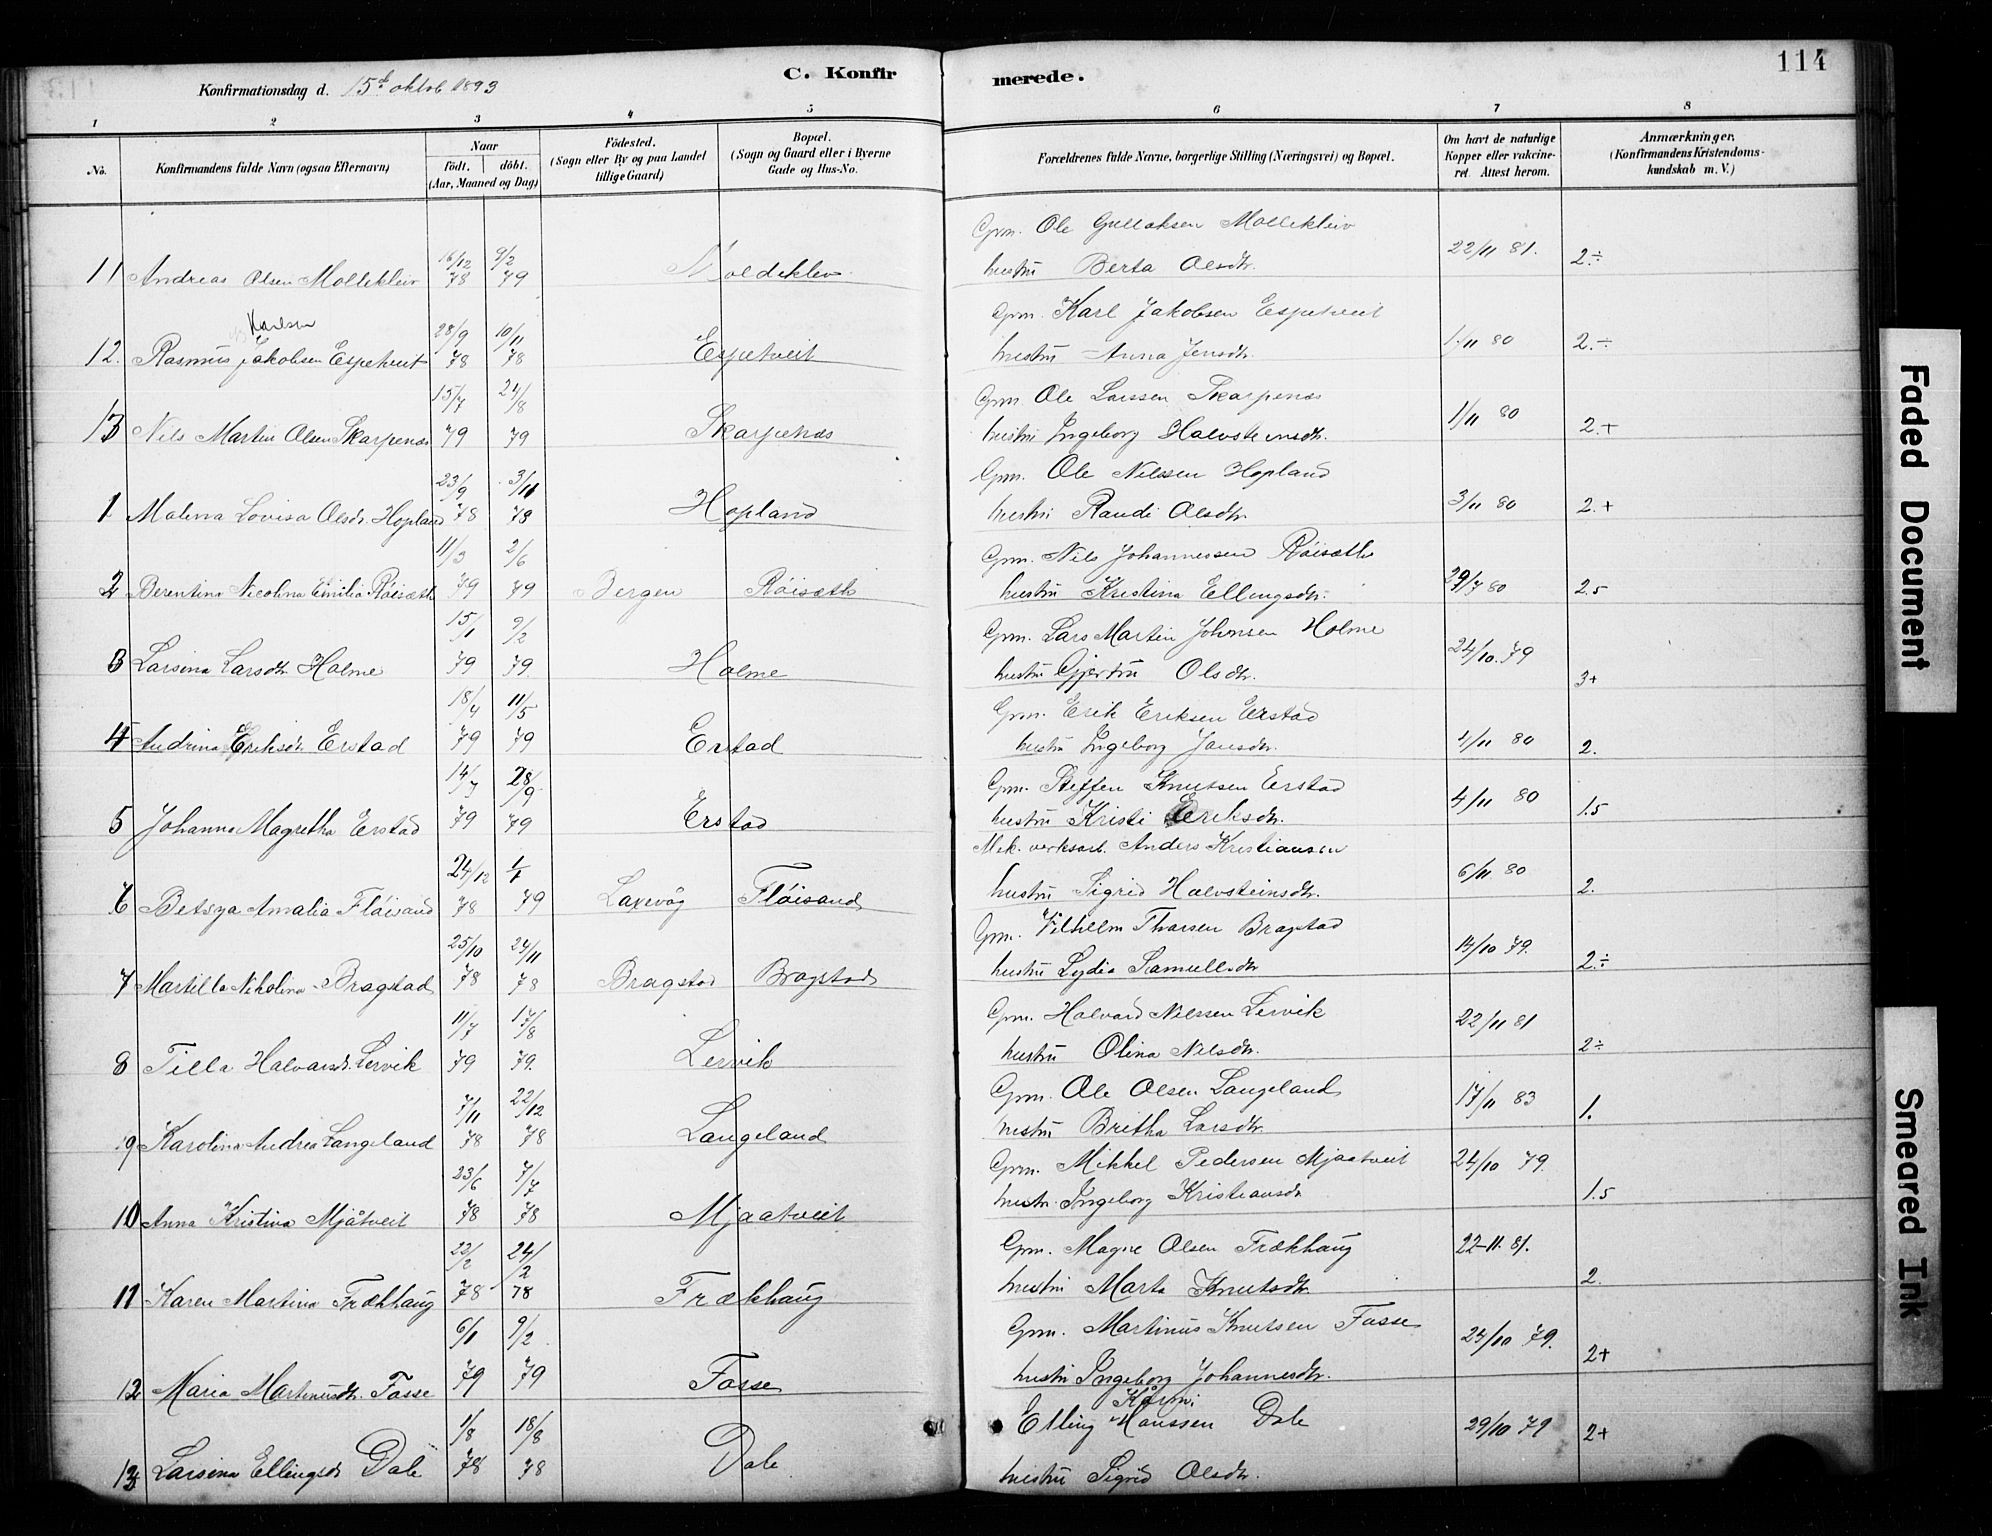 114
Konfirmationsdag d. 15d oktob 1893
C. Konfirmerede.
1 2 3 4 5 6 7 8
No. Konfirmandens fulde Navn (ogsaa Efternavn) Naar födt. döbt. (Aar, Maaned og Dag) Födested. (Sogn eller By og paa Landet tillige Gaard) Bopæl. (Sogn og Gaard eller i Byerne Gade og Hus-No. Forældrenes fulde Navne, borgerlige Stilling (Næringsvei) og Bopæl. Om havt de naturlige Kopper eller vakcineret. Attest herom. Anmærkninger. (Konfirmandens Kristendomskundskab m. V.)
Gm. Ole Gullaksen Mollekleiv
11 Andreas Olsen Mollekleiv 16/12 78 9/2 79 Moldeklev hustru Berta Olsdtr. 22/11 81. 2÷
Gm. Karl Jakobsen Espetveit
Karlsen
12. Rasmus Jakobsen Espetveit 28/9 78 10/11 78 Espetveit hustru Anna Jensdtr. 1/11 80 2.÷
Gm. Ole Larssen Skarpenæs
13 Nils Martin Olsen Skarpenæs 15/7 79 24/8 79 Skarpenæs hustru Ingeborg Halvsteinsdtr. 1/11 80 2.+
Gm. Ole Nilssen Hopland
1 Malena Lovisa Olsdtr. Hopland 23/9 78 3/11 78 Hopland hustru Randi Olsdtr 3/11 80 2.+
Gm. Nils Johannessen Röisæth
2 Berentina Nicolina Emilia Röisæth 11/3 79 2/6 79 Bergen Röisæth hustru Kristina Ellingsdtr. 29/7 80 2.5
Gm. Lars Martin Johnsen Holme
3 Larsina Larsdtr Holme 15/1 79 9/2 79. Holme hustru Gjertru Olsdtr. 24/10. 79 3+
Gm. Erik Eriksen Erstad
4 Andrina Eriksdtr Erstad 18/4 79 11/5 79 Erstad hustru Ingeborg Jansdtr. 4/11 80 2.
Gm. Steffen Knutsen Erstad
5 Johanna Magretha Erstad 14/7 79 28/9 79 Erstad hustru Kristi Eriksdtr. 4/11 80 1.5
Mek. verksarb. Anders Kristiansen
6 Betsya Amalia Flöisand 24/12 78 1/1 79 Laxevåg Flöisand hustru Sigrid Halvsteinsdtr. 6/11 80 2.
Gm. Vilhelm Thorsen Bragstad
7 Martilla Nikolina Bragstad 25/10 78 24/11 78 Bragstad Bragstad hustru Lydia Samuelsdtr 14/10 79. 2÷
Gm. Halvard Nilssen Lervik
8 Tilla Halvarsdtr. Lervik 11/7 79 17/8 79. Lervik hustru Olina Nilsdtr. 22/11 81 2÷
Gm. Ole Olsen Langeland
9 Karolina Andrea Langeland 7/11 78 22/12 78 Langeland hustru Britha Larsdtr. 17/11 83 1.
Gm. Mikkel Pedersen Mjaatveit
10 Anna Kristina Mjåtveit 23/6 78 7/7 78 Mjaatveit hustr. Ingeborg Kristiansdtr 24/10 79. 1.5
Gm. Magne Olsen Frækhaug
11 Karen Martina Frækhaug 22/2 78 24/2 78 Frækhaug hustru Marta Knutsdtr 22-11. 81. 2.
Gm. Martinus Knutsen Fosse
12 Maria Martinusdtr. Fosse 6/1 79 9/2 79 Fosse hustru Ingeborg Johannesdtr. 24/10 79. 2+
Elling Hanssen Dale
13 Larsina Ellingsdtr Dale 1/8 78 18/8 78 Dale hustru Sigrid Olsdtr. 29/10 79 2+
Faded Document
Smeared Ink